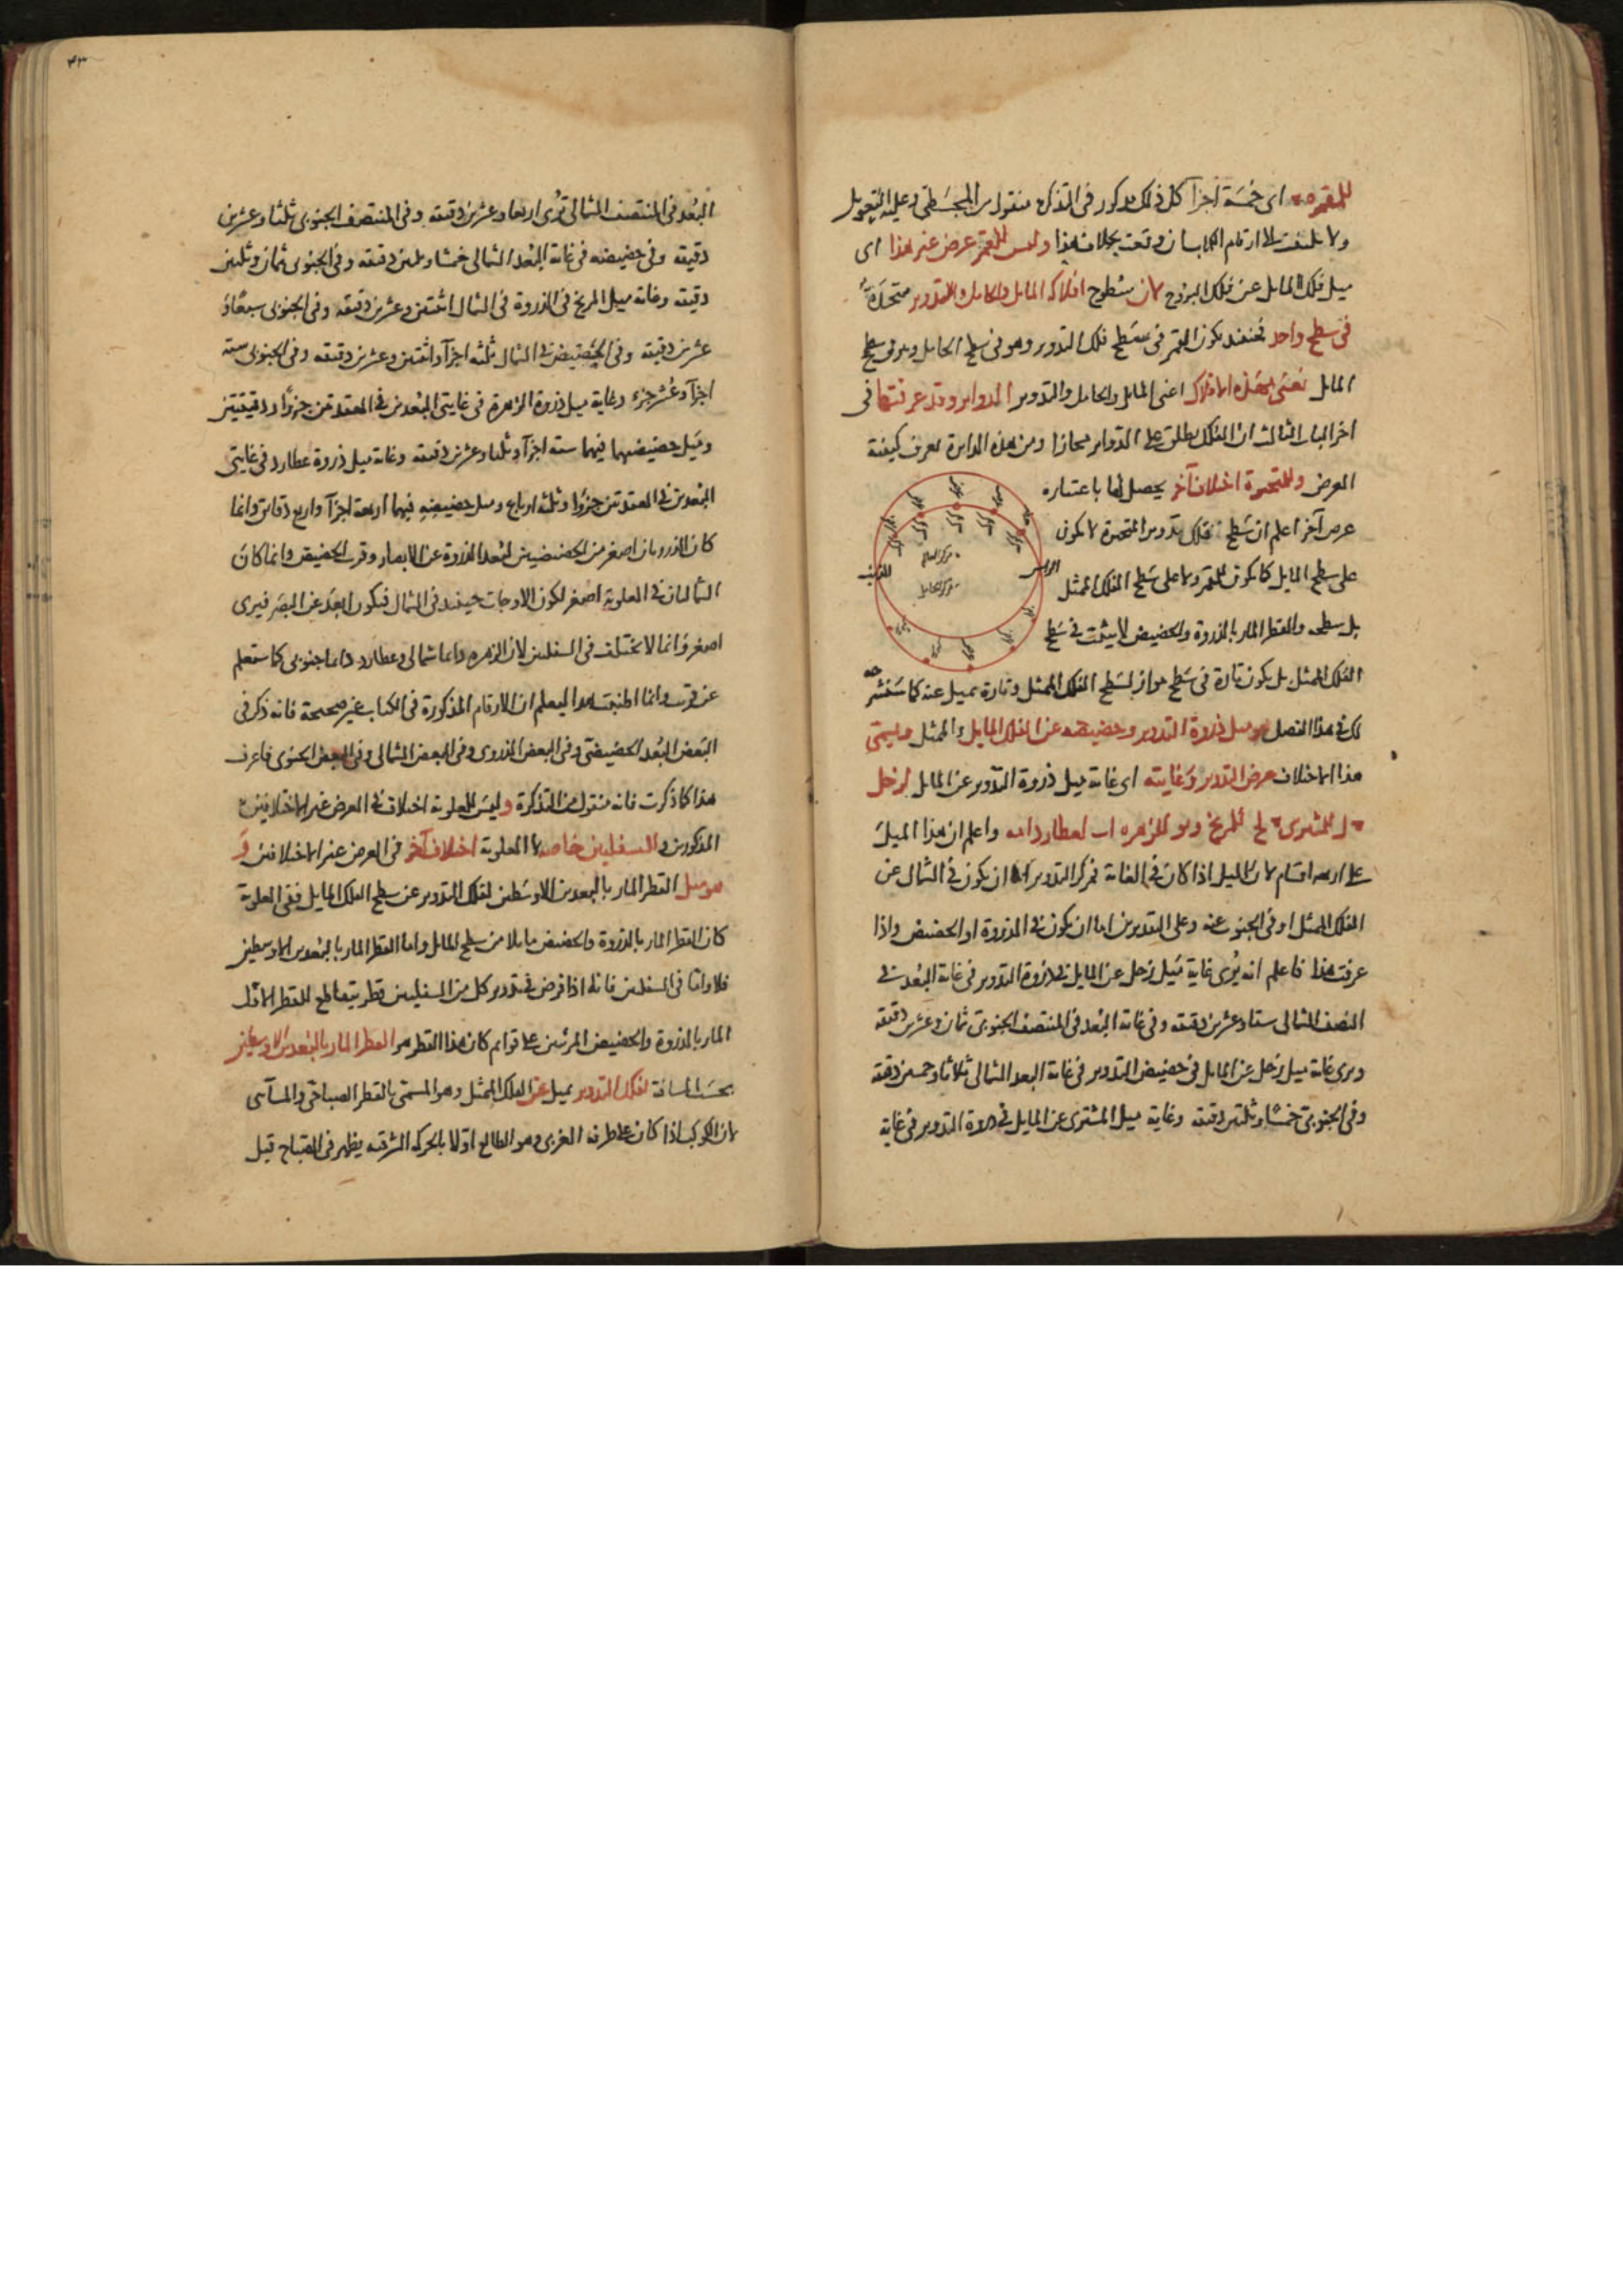 للقمر ه اى خمسة اجزآ كل ذلك مذكور فى التذكرة منقول من المجسطى وعليه التعويل
ولا يلتفت الى ارقام الكتاب ان وقعت بخلاف هذا وليس للقمر عرض غير هذا اى
ميل فلك المايل عن فلك البروج لان سطوح افلاكه المايل والحامل والتدوير متحدة
فى سطح واحد فحينئذ يكون القمر فى سطح فلك التدوير وهو فى سطح الحامل وهو فى سطح
المايل نعنى بهذه الافلاك اعنى المايل والحامل والتدوير الدواير وقد عرفتها فى
آخر الباب الثالث ان الفلك يطلق على الدواير مجازا ومن هذه الدايرة تعرف كيفية
العرض وللمتحيرة اختلاف آخر يحصل لها باعتباره
عرض آخر اعلم ان سطح فلك تدوير المتحيرة لا يكون
على سطح المايل كما يكون للقمر ولا على سطح الفلك الممثل
الراس
الذنب
مركز العالم
مركز الحامل
بل سطحه والقطر المار بالذروة والحضيض لا يثبت فى سطح
الفلك الممثل بل يكون تارة فى سطح مواز لسطح الفلك الممثل وتارة يميل عنه كما سنشرحه
لك فى هذا الفصل هو ميل ذروة التدوير وحضيضه عن الفلك المايل والممثل ويسمى
هذا الاختلاف عرض التدوير وغايته اى غاية ميل ذروة التدوير عن المايل لزحل
للمشترى لح للمريخ للزهره لعطارد واعلم ان هذا الميل
على اربعه اقسام لان الميل اذا كان فى الغاية فمركز التدوير اما ان يكون فى الشمال عن
الفلك الممثل او فى الجنوب عنه وعلى التقديرين اما ان يكون فى الذروة او الحضيض واذا
عرفت هذا فاعلم انه يرى غاية ميل زحل عن المايل فى ذروة التدوير فى غاية البعد فى
النصف الشمالى ستا وعشرين دقيقه وفى غاية البعد فى المنتصف الجنوبى ثمان وعشرين دقيقه
ويرى غاية ميل زحل عن المايل فى حضيض التدوير فى غاية البعد الشمالى ثلاثا وخمسين دقيقه
وفى الجنوبى خمسا وثلثين دقيقه وغاية ميل المشترى عن المايل فى ذروة التدوير فى غاية
٤٣
البعد فى المنتصف الشمالى ترى اربعا وعشرين دقيقه وفى المنتصف الجنوبى ثلثا وعشرين
دقيقه وفى حضيضه فى غاية البعد الشمالى خمسا وثلثين دقيقه وفى الجنوبى ثمان وثلثين
دقيقه وغاية ميل المريخ فى الذروة فى الشمال اثنتين وعشرين دقيقه وفى الجنوبى سبعا و
عشرين دقيقه وفى الحضيض فى الشمال ثلثه اجزآ واثنتين وعشرين دقيقه وفى الجنوبى سته
اجزآ وعشر جزء وغاية ميل ذروة الزهرة فى غايتى البعدين فى العقدتين جزوا ودقيقتين
وميل حضيضها فيهما سته اجزآ وثلثا وعشرين دقيقه وغاية ميل ذروة عطارد فى غايتى
البعدين فى العقدتين جزوا وثلثه ارباع وميل حضيضه فيهما اربعة اجزآ واربع دقايق وانما
كان الذرويان اصغر من الحضيضيين لبعد الذروة عن الابصار وقرب الحضيض وانما كان
الشماليان فى العلوية اصغر لكون الاوجات حينئذ فى الشمال فيكون ابعد عن البصر فيرى
اصغر وانما لا يختلف فى السفليين لان الزهره دايما شمالى وعطارد دايما جنوبى كما ستعلم
عن قريب وانما اطنبت هذا ليعلم ان الارقام المذكورة فى الكتاب غير صحيحة فانه ذكر فى
البعض البعد الحضيضى وفى البعض الذروى وفى البعض الشمالى وفى البعض الجنوبى فاعرف
هذا كما ذكرت فانه منقول من التذكرة وليس للعلوية اختلاف فى العرض غير الاختلافين
المذكورين وللسفليين خاصه لا العلوية اختلاف آخر فى العرض غير الاختلافين و
هو ميل القطر المار بالبعدين الاوسطين لفلك التدوير عن سطح الفلك المايل ففى العلوية
كان القطر المار بالذروة والحضيض مايلا من سطح المايل واما القطر المار بالبعدين الاوسطين
فلا واما فى السفليين فانه اذا فرض فى تدوير كل من السفليين قطر يتقاطع للقطر الاول
المار بالذروة والحضيض المرئيين على قوايم كان هذا القطر هو القطر المار بالبعدين الاوسطين
بحسب المسافة لفلك التدوير يميل عن الفلك الممثل وهو المسمى بالقطر الصباحى والمسآئى
لان الكوكب اذا كان على طرفه الغربى وهو الطالع اولا بالحركه الشرقيه يظهر فى الصباح قبل